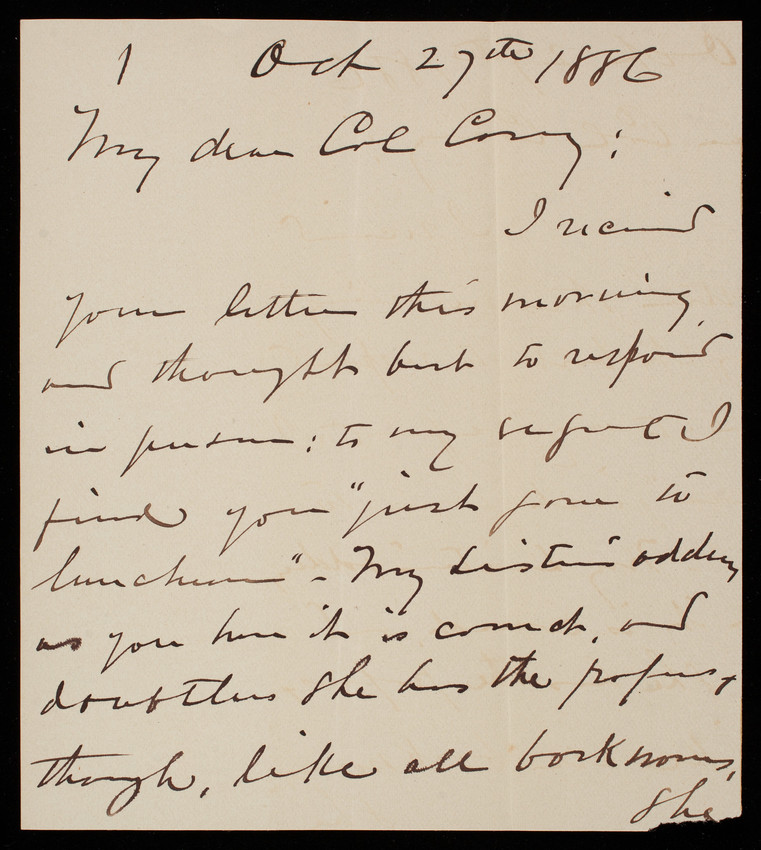 1 Oct 27th 1886
My dear Col Casey:
I received
your letter this morning,
and thought best to respond
in person; to my regret I
find you "just gone to
luncheon" - My sister's address
as you have it is correct, and
doubtless she has the
though, like all bookworms,
she